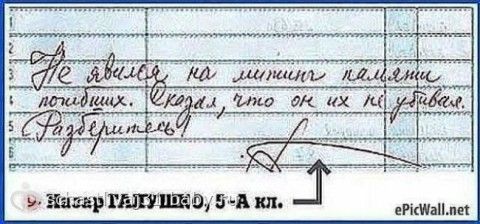 Не явился на митинг памяти
погибших. Сказал, что он их не убивал.
Разберитесь!
Назар ГАЛУШКО, 5-А кл.
ePicWall.net